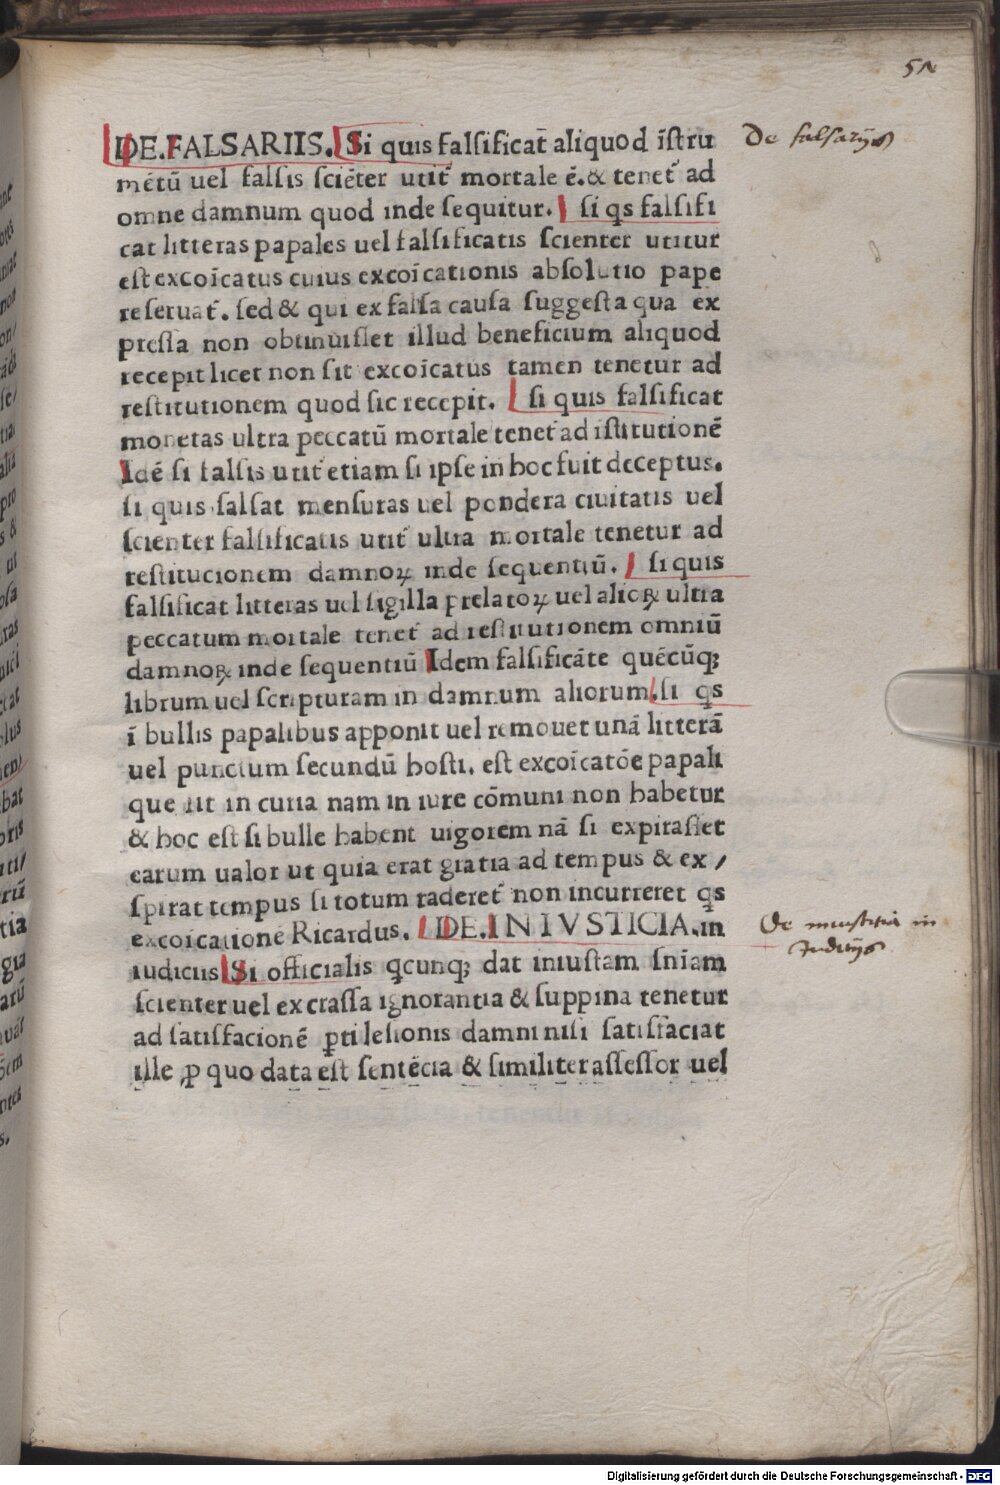 51
DE.FALSARIIS. Si quis falſificat̄ aliquod īſtru
mētū uel falſis ſciēter utit̄ mortale ē. & tenet̄ ad
omne damnum quod inde ſequitur. ſi qs falſifi
cat litteras papales uel falſificatis ſcienter utitur
eſt excoīcatus cuius excoīcationis abſolutio pape
reſeruat̄. ſed & qui ex falſa cauſa ſuggeſta qua ex
preſſa non obtinuiſſet illud beneficium aliquod
recepit licet non ſit excoīcatus tamen tenetur ad
reſtitutionem quod ſic recepit. ſi quis falſificat
monetas ultra peccatū mortale tenet̄ ad iſtitutionē
Idē ſi falſis utit̄ etiam ſi ipſe in hoc fuit deceptus.
ſi quis falſat menſuras uel pondera ciuitatis uel
ſcienter falſificatis utit̄ ultra mortale tenetur ad
reſtitucionem damnoꝝ inde ſequentiū. ſi quis
falſificat litteras uel ſigilla prelatoꝝ uel alioꝝ ultra
peccatum mortale tenet̄ ad reſtitutionem omniū
damnoꝝ inde ſequentiū Idem falſificāte quēcūqꝫ
librum uel ſcripturam in damnum aliorum. ſi qs
ī bullis papalibus apponit uel remouet unā litterā
uel punctum ſecundū hoſti. eſt excoīcatōe papali
que fit in curia nam in iure cōmuni non habetur
& hoc eſt ſi bulle habent uigorem nā ſi expiraſſet
earum ualor ut quia erat gratia ad tempus & ex /
ſpirat tempus ſi totum raderet̄ non incurreret qs
excoicationē Ricardus. DE.INIVSTICIA.in
iudiciis Si officialis qcunqꝫ dat iniuſtam ſniam
ſcienter uel ex craſſa ignorantia & ſuppina tenetur
ad ſatisfacionē ꝑti leſionis damni niſi ſatisfaciat
ille ꝓ quo data eſt ſentēcia & ſimiliter aſſeſſor uel
De falsarijs
De iniustitia in
Judicijs
Digitalisierung gefördert durch die Deutsche Forschungsgemeinschaft - DFG